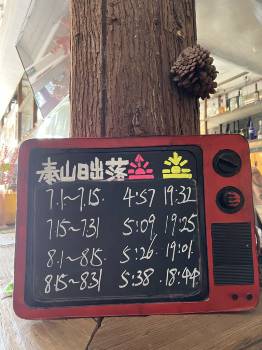 泰山日出落
7.1~7.15. 4:57 19:32
7.15~7.31 5:09 19:25
8.1~8.15. 5:26 19:01
8.15~8.31 5:38 18:44